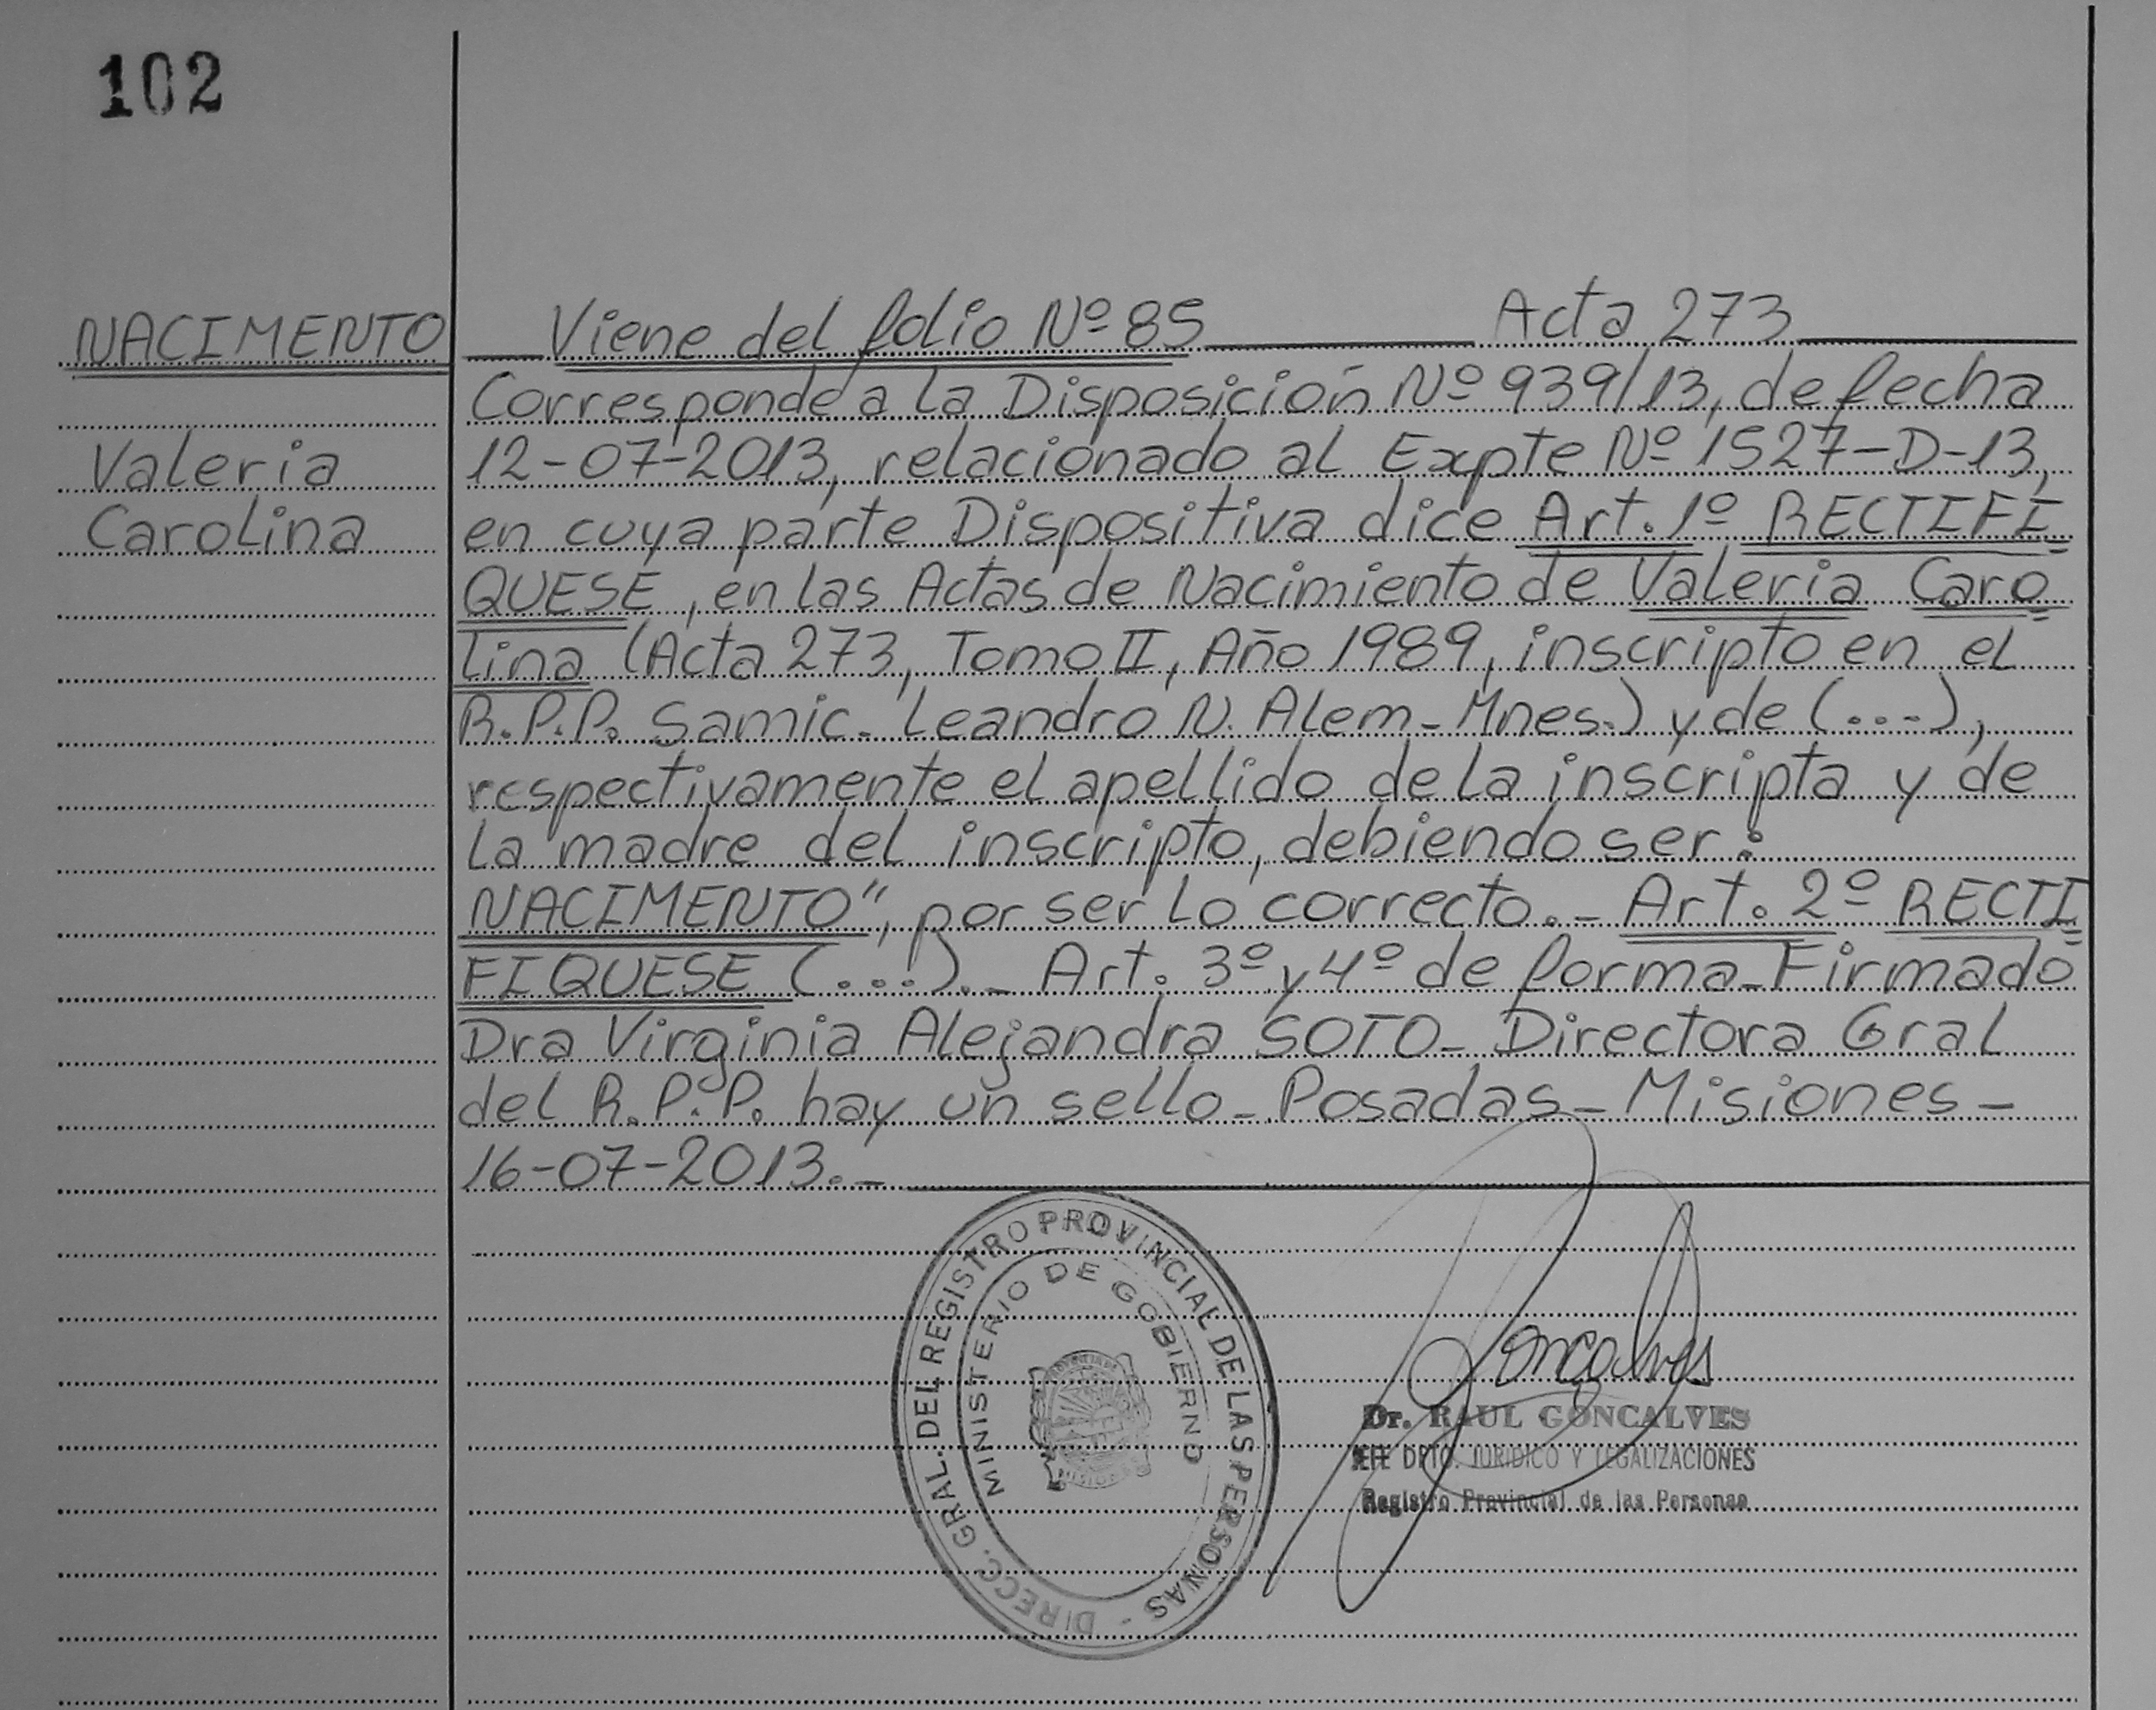 102
NACIMENTO
Valeria
Carolina
Viene del folio Nº 85 Acta 273
Corresponde a la Disposición Nº 939/13, de fecha
12-07-2013, relacionado al Expte Nº 1527-D-13,
en cuya parte Dispositiva dice Art. 1º RECTIFI
QUESE, en las Actas de Nacimiento de Valeria Caro
lina (Acta 273, Tomo II, Año 1989, inscripto en el
R.P.P. Samic. Leandro N. Alem - Mnes.) y de (....),
respectivamente el apellido de la inscripta y de
la madre del inscripto, debiendo ser:
NACIMENTO", por ser lo correcto.- Art. 2º RECTI
FIQUESE (...).- Art. 3º y 4º de forma - Firmado
Dra Virginia Alejandra SOTO - Directora Gral
del R.P.P. hay un sello - Posadas - Misiones -
16-07-2013.-
DIRECC. GRAL. DEL REGISTRO PROVINCIAL DE LAS PERSONAS -
MINISTERIO DE GOBIERNO
Goncalves
Dr. RAUL GONCALVES
JEFE DPTO. JURIDICO Y LEGALIZACIONES
Registro Provincial de las Personas